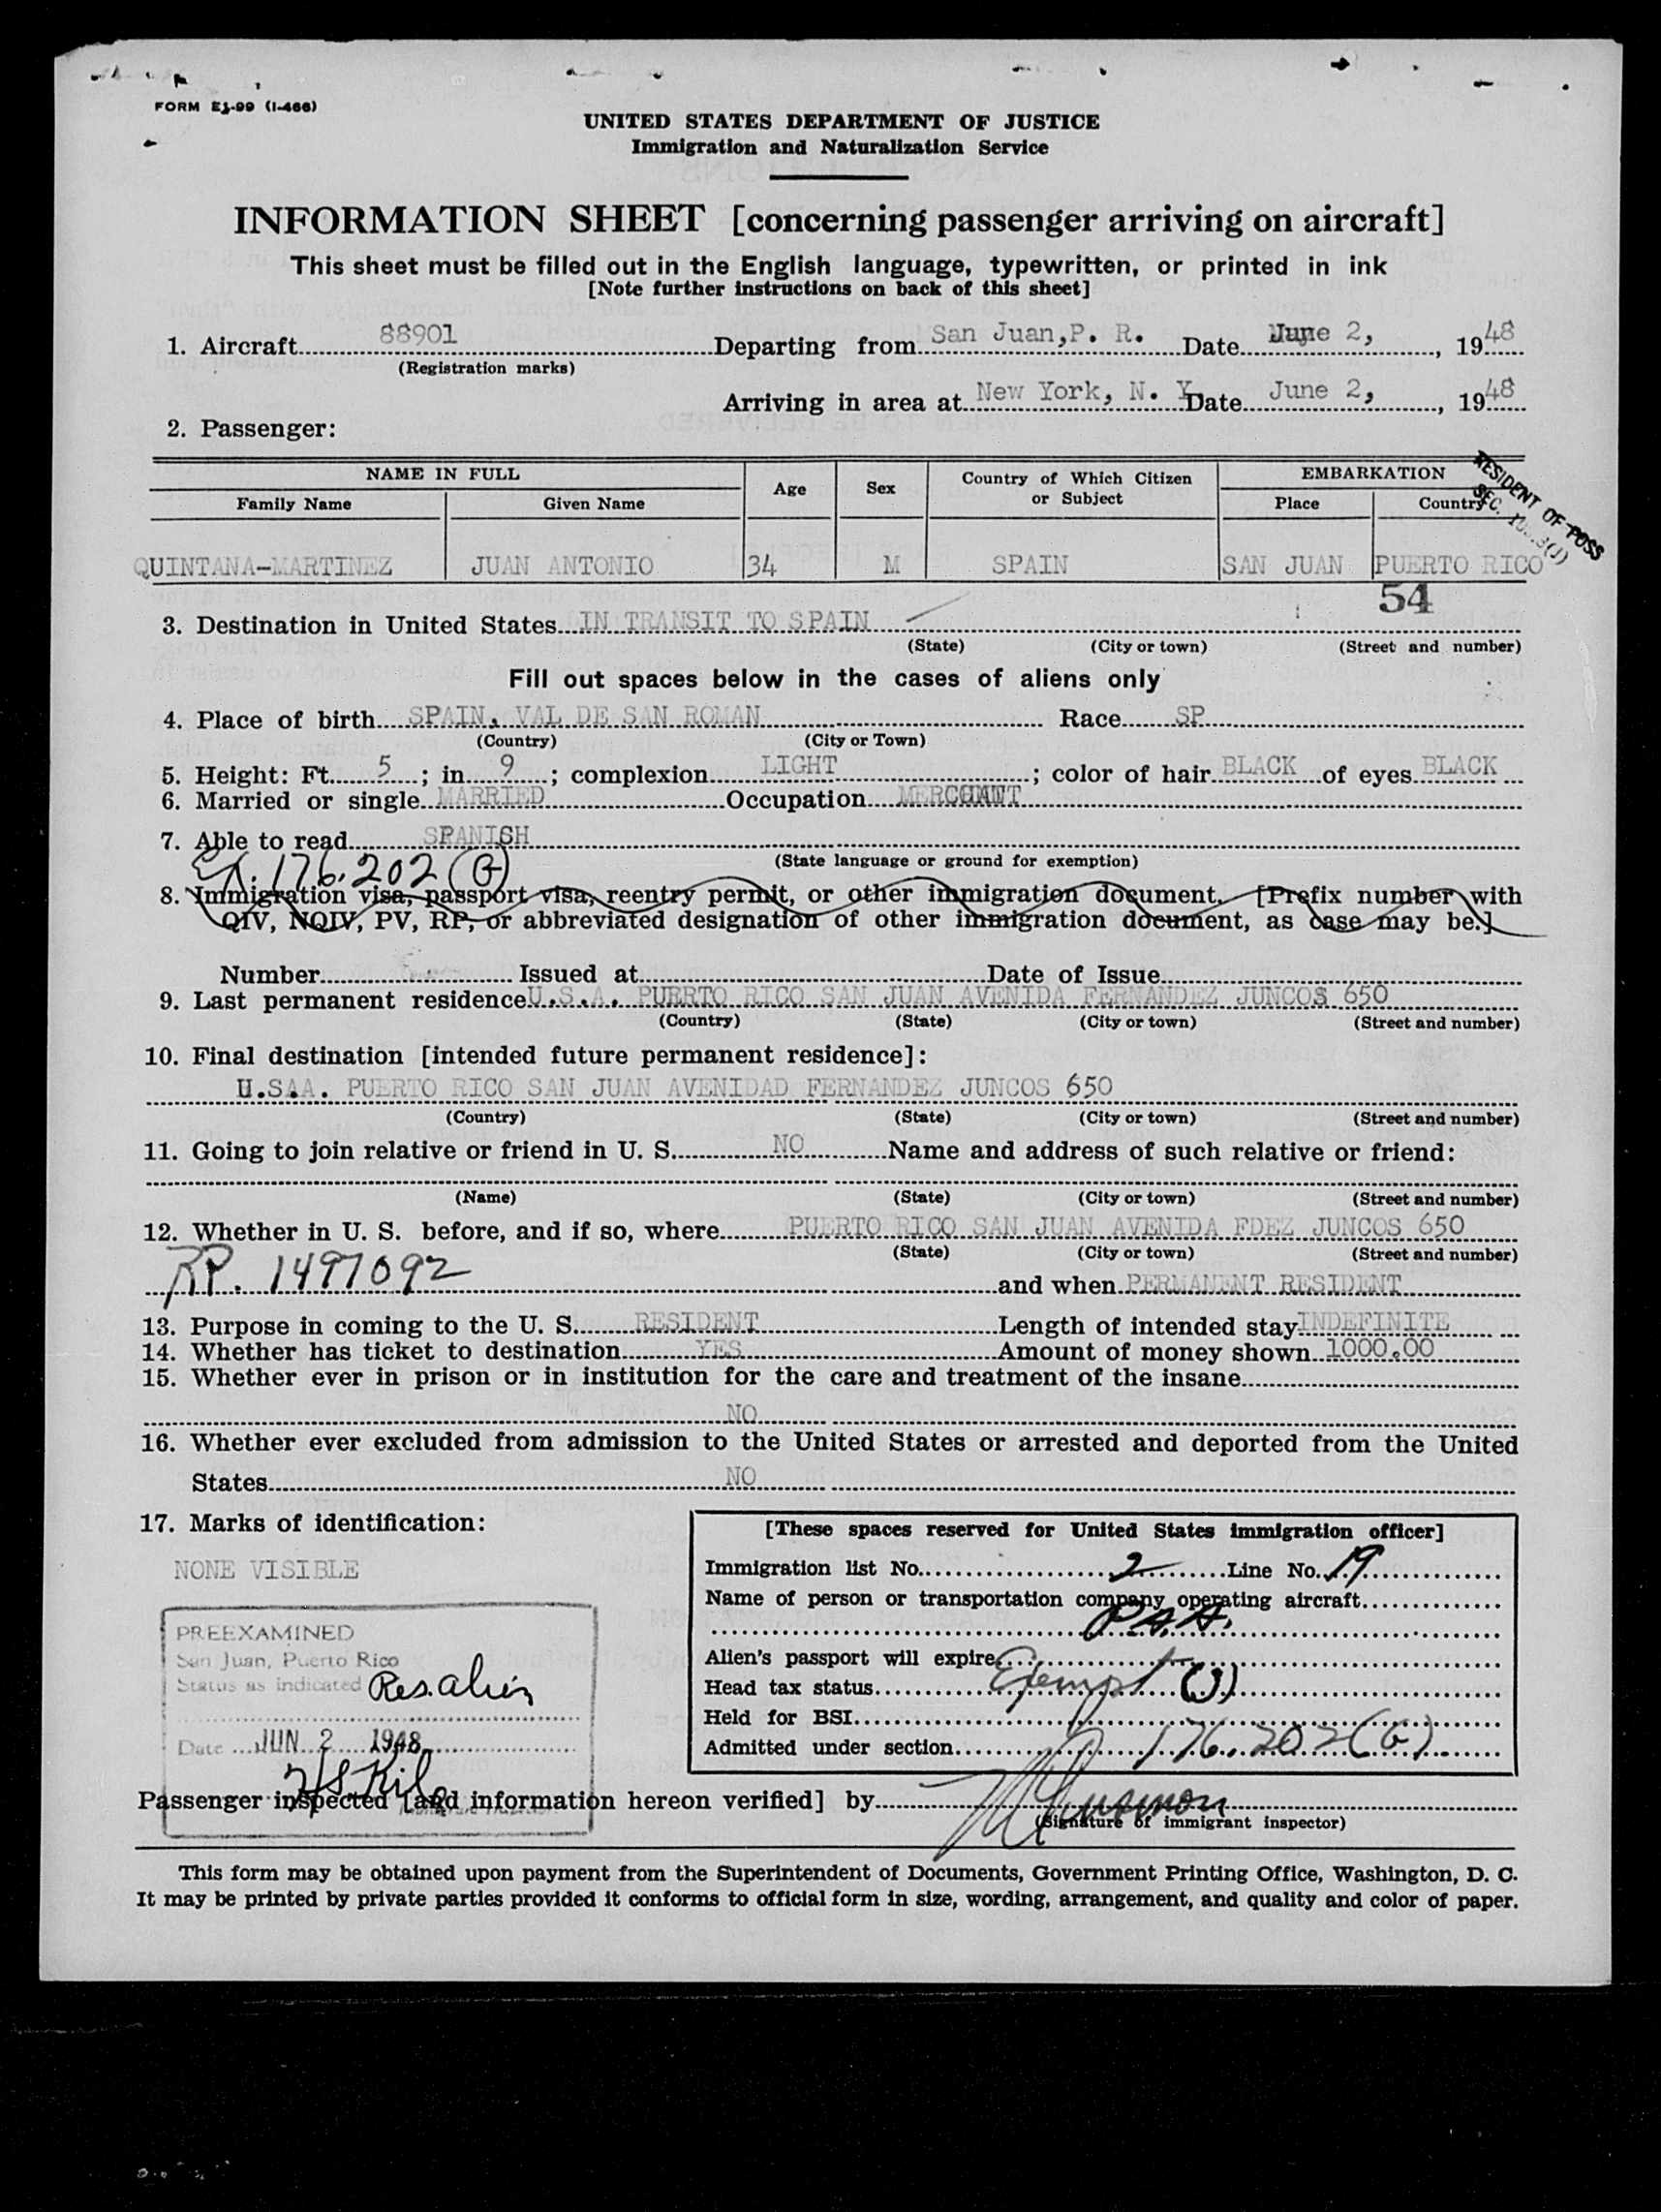 FORM E3-99 (I-466)
UNITED STATES DEPARTMENT OF JUSTICE
Immigration and Naturalization Service
INFORMATION SHEET [concerning passenger arriving on aircraft]
This sheet must be filled out in the English language, typewritten, or printed in ink
[Note further instructions on back of this sheet]
1. Aircraft 88901 Departing from San Juan, P. R. Date June 2, 1948
(Registration marks)
Arriving in area at New York, N. Y. Date June 2, 1948
2. Passenger:
NAME IN FULL Age Sex Country of Which Citizen or Subject EMBARKATION
Family Name Given Name Place Country
RESIDENT OF POSS
SEC.
QUINTANA-MARTINEZ JUAN ANTONIO 34 M SPAIN SAN JUAN PUERTO RICO
54
3. Destination in United States IN TRANSIT TO SPAIN
(State) (City or town) (Street and number)
Fill out spaces below in the cases of aliens only
4. Place of birth SPAIN, VAL DE SAN ROMAN Race SP
(Country) (City or Town)
5. Height: Ft. 5; in. 9; complexion LIGHT; color of hair BLACK of eyes BLACK
6. Married or single MARRIED Occupation MERCHANT
7. Able to read SPANISH
(State language or ground for exemption)
176.202 (G)
8. Immigration visa, passport visa, reentry permit, or other immigration document. [Prefix number with
QIV, NQIV, PV, RP, or abbreviated designation of other immigration document, as case may be.]
Number Issued at Date of Issue
9. Last permanent residence U.S.A. PUERTO RICO SAN JUAN AVENIDA FERNANDEZ JUNCOS 650
(Country) (State) (City or town) (Street and number)
10. Final destination [intended future permanent residence]:
U.SAA. PUERTO RICO SAN JUAN AVENIDAD FERNANDEZ JUNCOS 650
(Country) (State) (City or town) (Street and number)
11. Going to join relative or friend in U. S. NO Name and address of such relative or friend:
(Name) (State) (City or town) (Street and number)
12. Whether in U. S. before, and if so, where PUERTO RICO SAN JUAN AVENIDA FDEZ JUNCOS 650
(State) (City or town) (Street and number)
RP. 1497092 and when PERMANENT RESIDENT
13. Purpose in coming to the U. S. RESIDENT Length of intended stay INDEFINITE
14. Whether has ticket to destination YES Amount of money shown 1000.00
15. Whether ever in prison or in institution for the care and treatment of the insane
NO
16. Whether ever excluded from admission to the United States or arrested and deported from the United
States NO
17. Marks of identification:
NONE VISIBLE
PREEXAMINED
San Juan, Puerto Rico
Status as indicated Res. alien
Date JUN 2 1948
[These spaces reserved for United States immigration officer]
Immigration list No. 2 Line No. 19
Name of person or transportation company operating aircraft
P.A.A.
Alien's passport will expire
Head tax status Exempt (J)
Held for BSI
Admitted under section 176.202(G)
Passenger inspected [and information hereon verified] by
(Signature of immigrant inspector)
This form may be obtained upon payment from the Superintendent of Documents, Government Printing Office, Washington, D. C.
It may be printed by private parties provided it conforms to official form in size, wording, arrangement, and quality and color of paper.